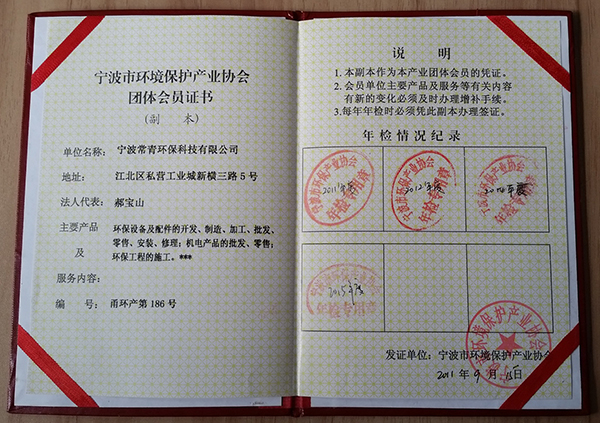 宁波市环境保护产业协会
团体会员证书
(副 本)
单位名称: 宁波常青环保科技有限公司
地址: 江北区私营工业城新横三路5号
法人代表: 郝宝山
主要产品及服务内容: 环保设备及配件的开发、制造、加工、批发、
零售、安装、修理; 机电产品的批发、零售;
环保工程的施工。***
编 号: 甬环产第186号
说 明
1. 本副本作为本产业团体会员的凭证。
2. 会员单位主要产品及服务等有关内容
有新的变化必须及时办理增补手续。
3. 每年年检时必须凭此副本办理签证。
年检情况纪录
宁波市环境保护产业协会
2011年度
年检专用章
宁波市环境保护产业协会
2012年度
年检专用章
宁波市环境保护产业协会
2014年度
年检专用章
宁波市环境保护产业协会
2015年度
年检专用章
宁波市环境保护产业协会
发证单位: 宁波市环境保护产业协会
2011年9月15日